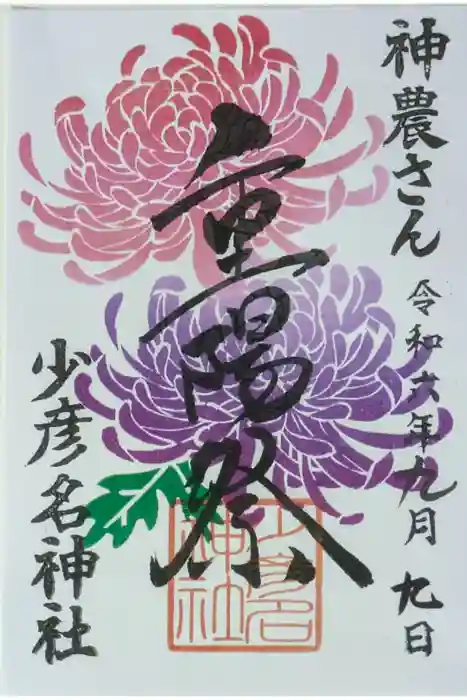 神農さん
令和六年九月九日
重陽祭
少彦名神社
少彦名
神社